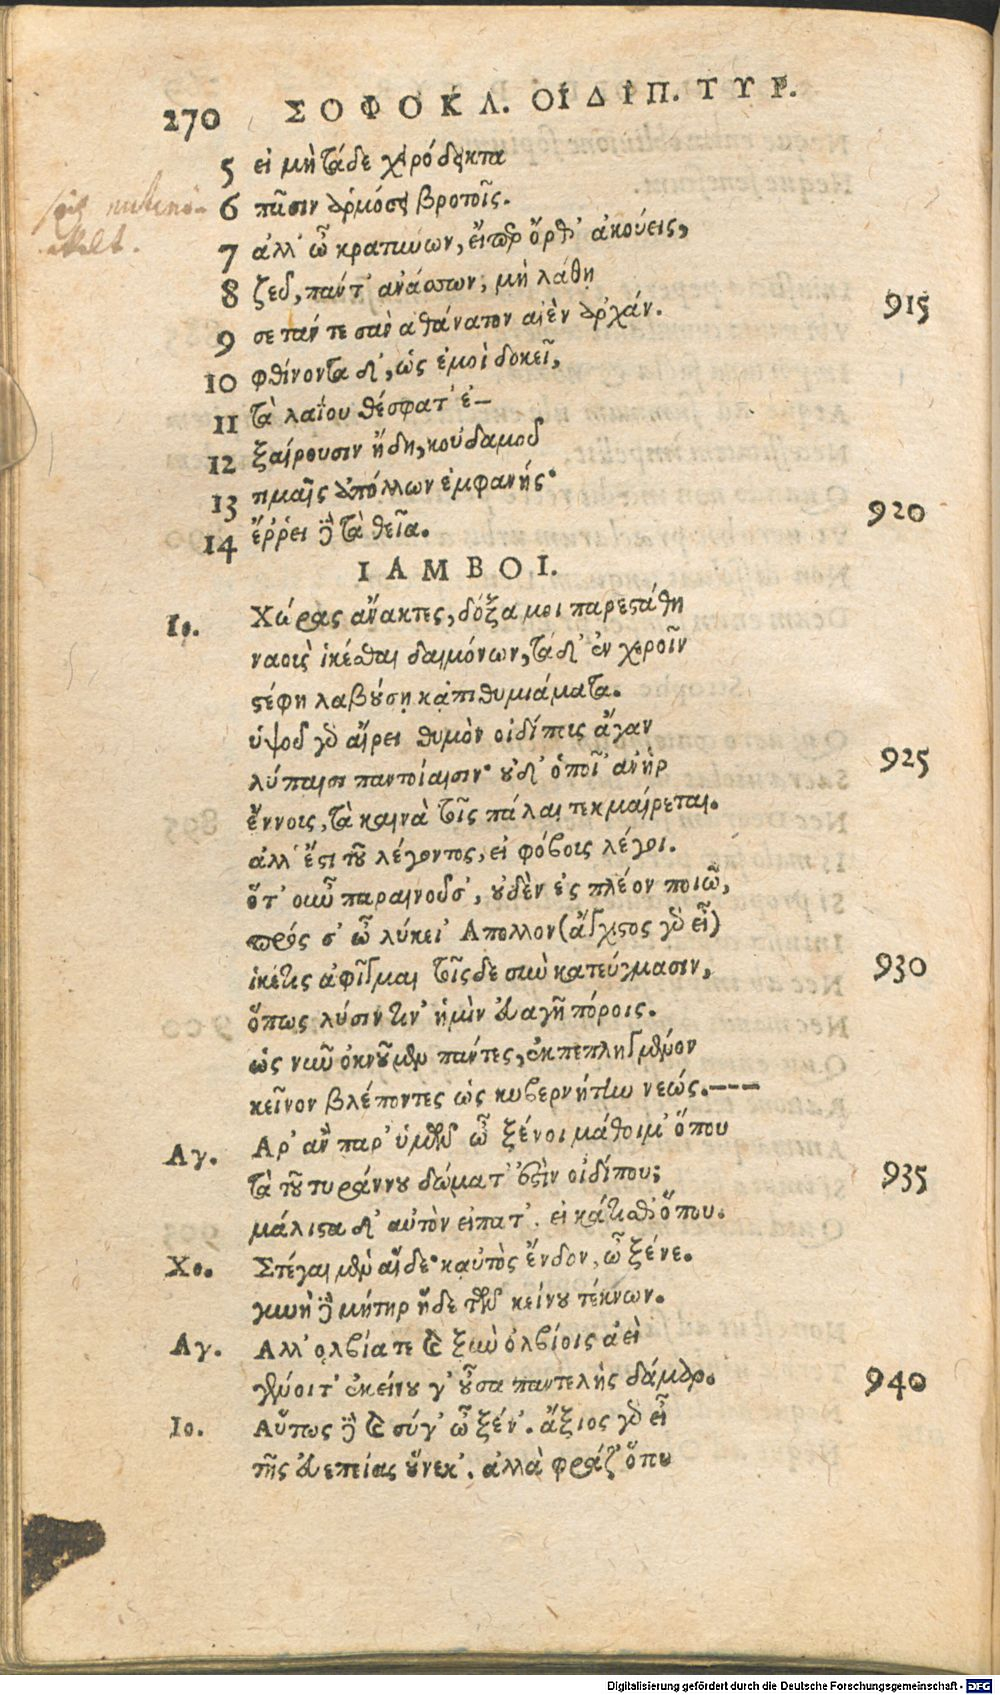 270 ΣΟΦΟΚΛ. ΟΙΔΙΠ. ΤΥΡ.
5 εἰ μὴ τάδε χειρόδεικτα
6 πᾶσιν ἁρμόσει βροτοῖς.
7 ἀλλ' ὦ κρατιύων, εἴπερ ὄρθ' ἀκούεις,
8 ζεῦ, πάντ' ἀνάσσων, μὴ λάθῃ
9 σε τάν τε σὰν ἀθάνατον αἰὲν ἀρχάν. 915
10 φθίνοντα δ', ὡς ἐμοὶ δοκεῖ,
11 τὰ λαΐου θέσφατ' ἐ-
12 ξαίρουσιν ἤδη, κοὐδαμοῦ
13 τιμαῖς ἀπόλλων ἐμφανής·
14 ἔῤῥει δὲ τὰ θεῖα. 920
ΙΑΜΒΟΙ.
Ιο. Χώρας ἄνακτες, δόξα μοι παρεστάθη
ναοὺς ἱκέσθαι δαιμόνων, τάδ' ἐν χεροῖν
στέφη λαβούσῃ κἀπιθυμιάματα.
ὑψοῦ γὰρ αἴρει θυμὸν οἰδίπους ἄγαν
λύπαισι παντοίαισιν· οὐδ' ὁποῖ' ἀνὴρ 925
ἔννους, τὰ καινὰ τοῖς πάλαι τεκμαίρεται.
ἀλλ' ἔστι τοῦ λέγοντος, εἰ φόβους λέγοι.
ὅτ' οὖν παραινοῦσ', οὐδὲν ἐς πλέον ποιῶ,
πρός σ' ὦ λύκει' Απολλον (ἄγχιστος γὰρ εἶ)
ἱκέτις ἀφῖγμαι τοῖς δε σὺν κατεύγμασιν, 930
ὅπως λύσιν τιν' ἡμὶν εὐαγῆ πόροις.
ὡς νῦν ὀκνοῦμεν πάντες, ἐκπεπληγμένον
κεῖνον βλέποντες ὡς κυβερνήτην νεώς.---
Αγ. Αρ' ἂν παρ' ὑμῶν ὦ ξένοι μάθοιμ' ὅπου
τὰ τοῦ τυράννου δώματ' ἐστὶν οἰδίπου; 935
μάλιστα δ' αὐτὸν εἰπατ'. εἰ κάτισθ' ὅπου.
Χο. Στέγαι μὲν αἵδε· καὐτὸς ἔνδον, ὦ ξένε.
γυνὴ δὲ μήτηρ ἥδε τῶν κείνου τέκνων.
Αγ. Αλλ' ολβία τε καὶ ξὺν ὀλβίοις ἀεὶ
γένοιτ' ἐκείνου γ' οὖσα παντελὴς δάμαρ. 940
Ιο. Αὕτως δὲ καὶ σύγ' ὦ ξέν'. ἄξιος γὰρ εἶ
τῆς εὐεπείας οὕνεκ'. ἀλλὰ φράζ' ὅπου
Digitalisierung gefördert durch die Deutsche Forschungsgemeinschaft - DFG